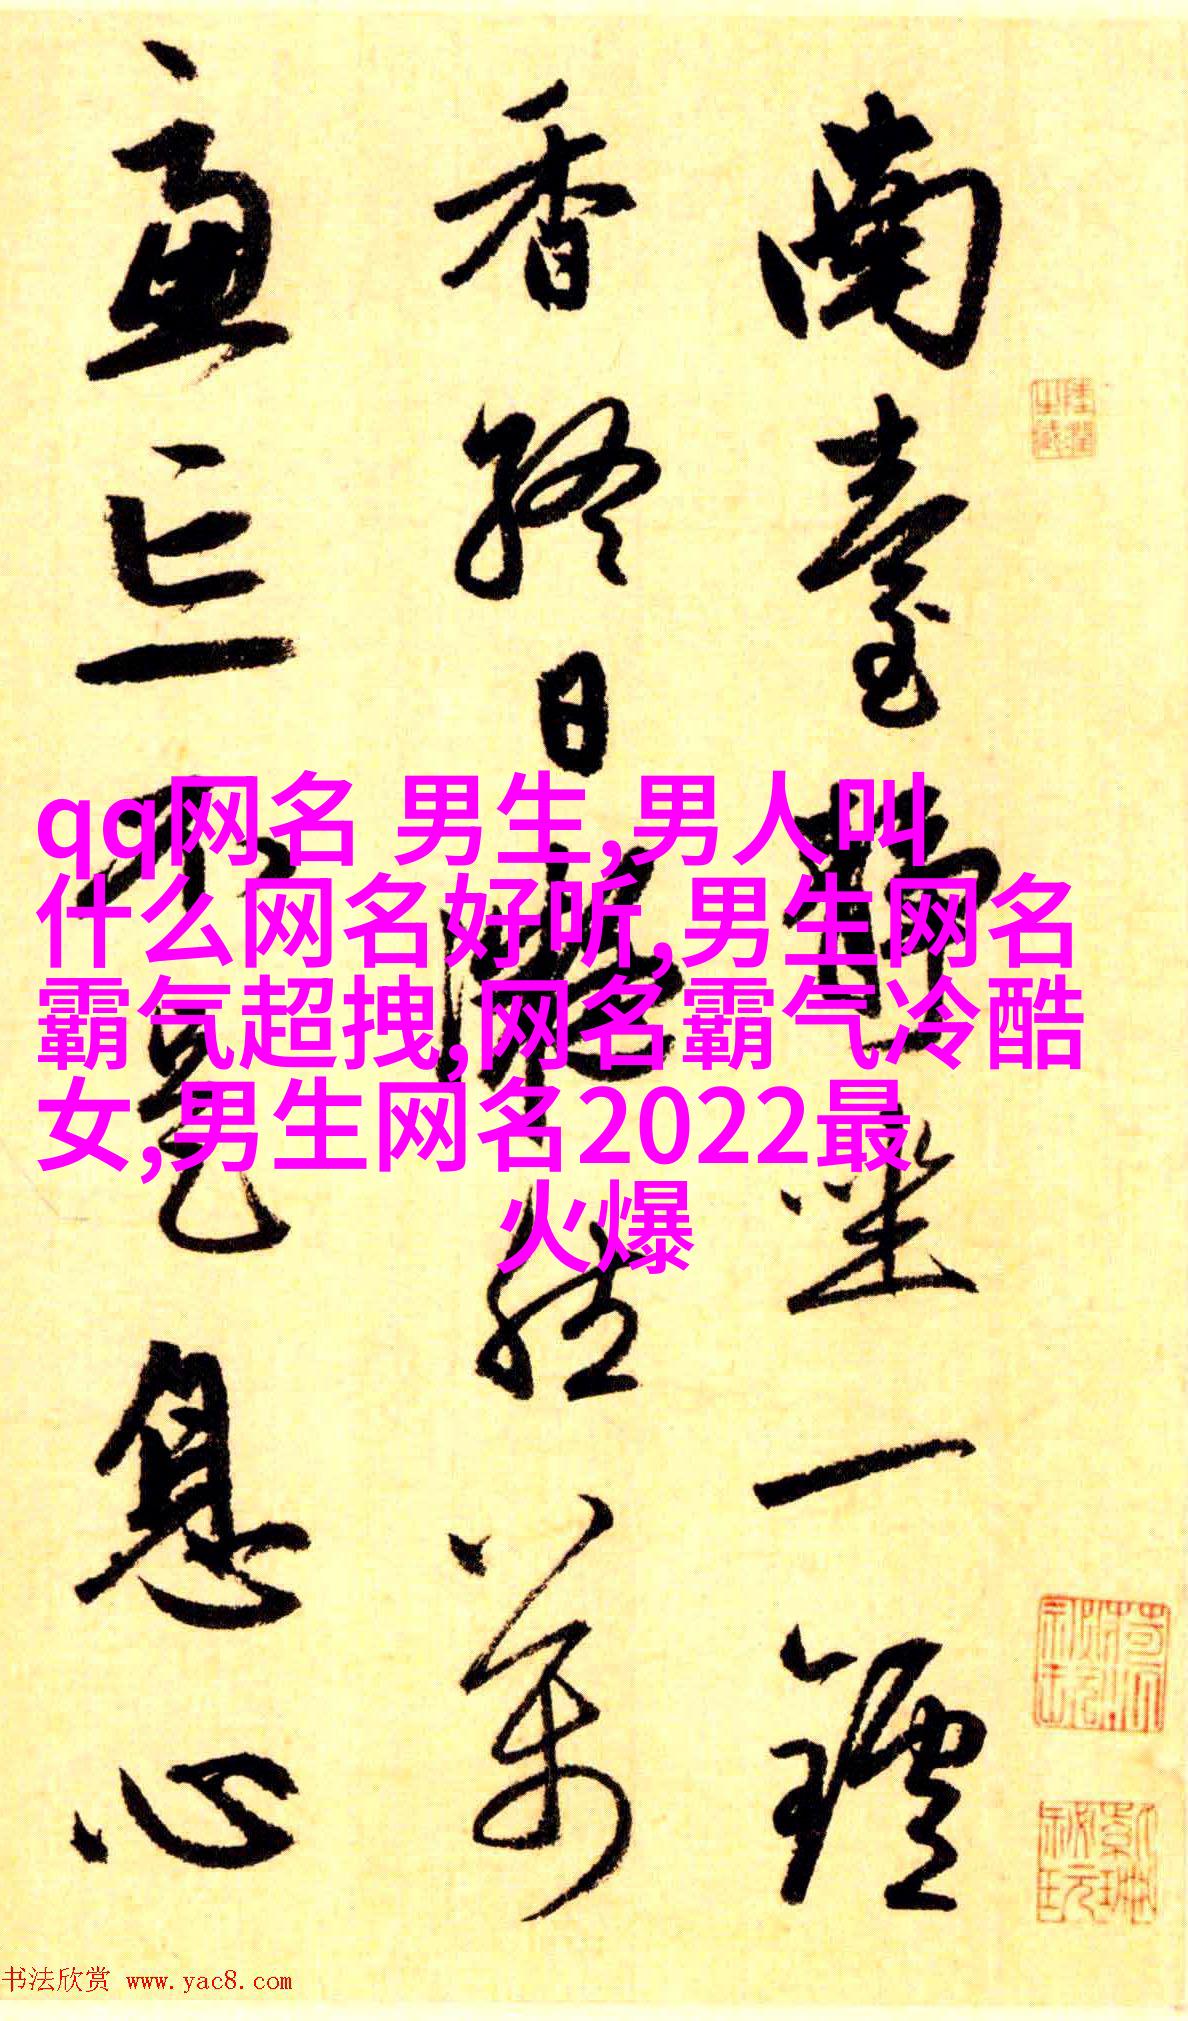 南臺靜坐一鑪
香終日凝然萬
慮亡不是息心
qq网名 男生,男人叫
什么网名好听,男生网名
霸气超拽,网名霸气冷酷
女,男生网名2022最
火爆
书法欣赏 www.yac8.com